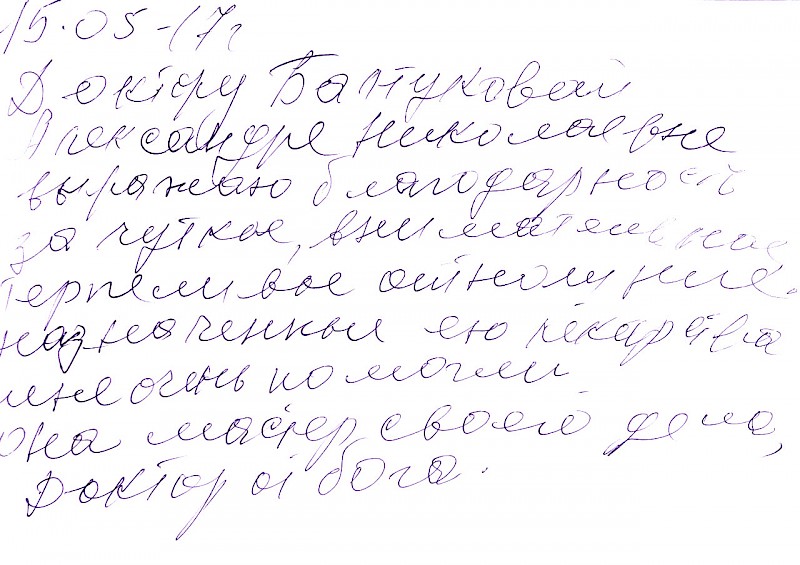 15.05-17г
Доктору Батуковой
Александре Николаевне
выражаю благодарность
за чуткое, внимательное
терпеливое отношение.
назначенные ею лекарства
мне очень помогли
она мастер своего дела,
Доктор от бога.